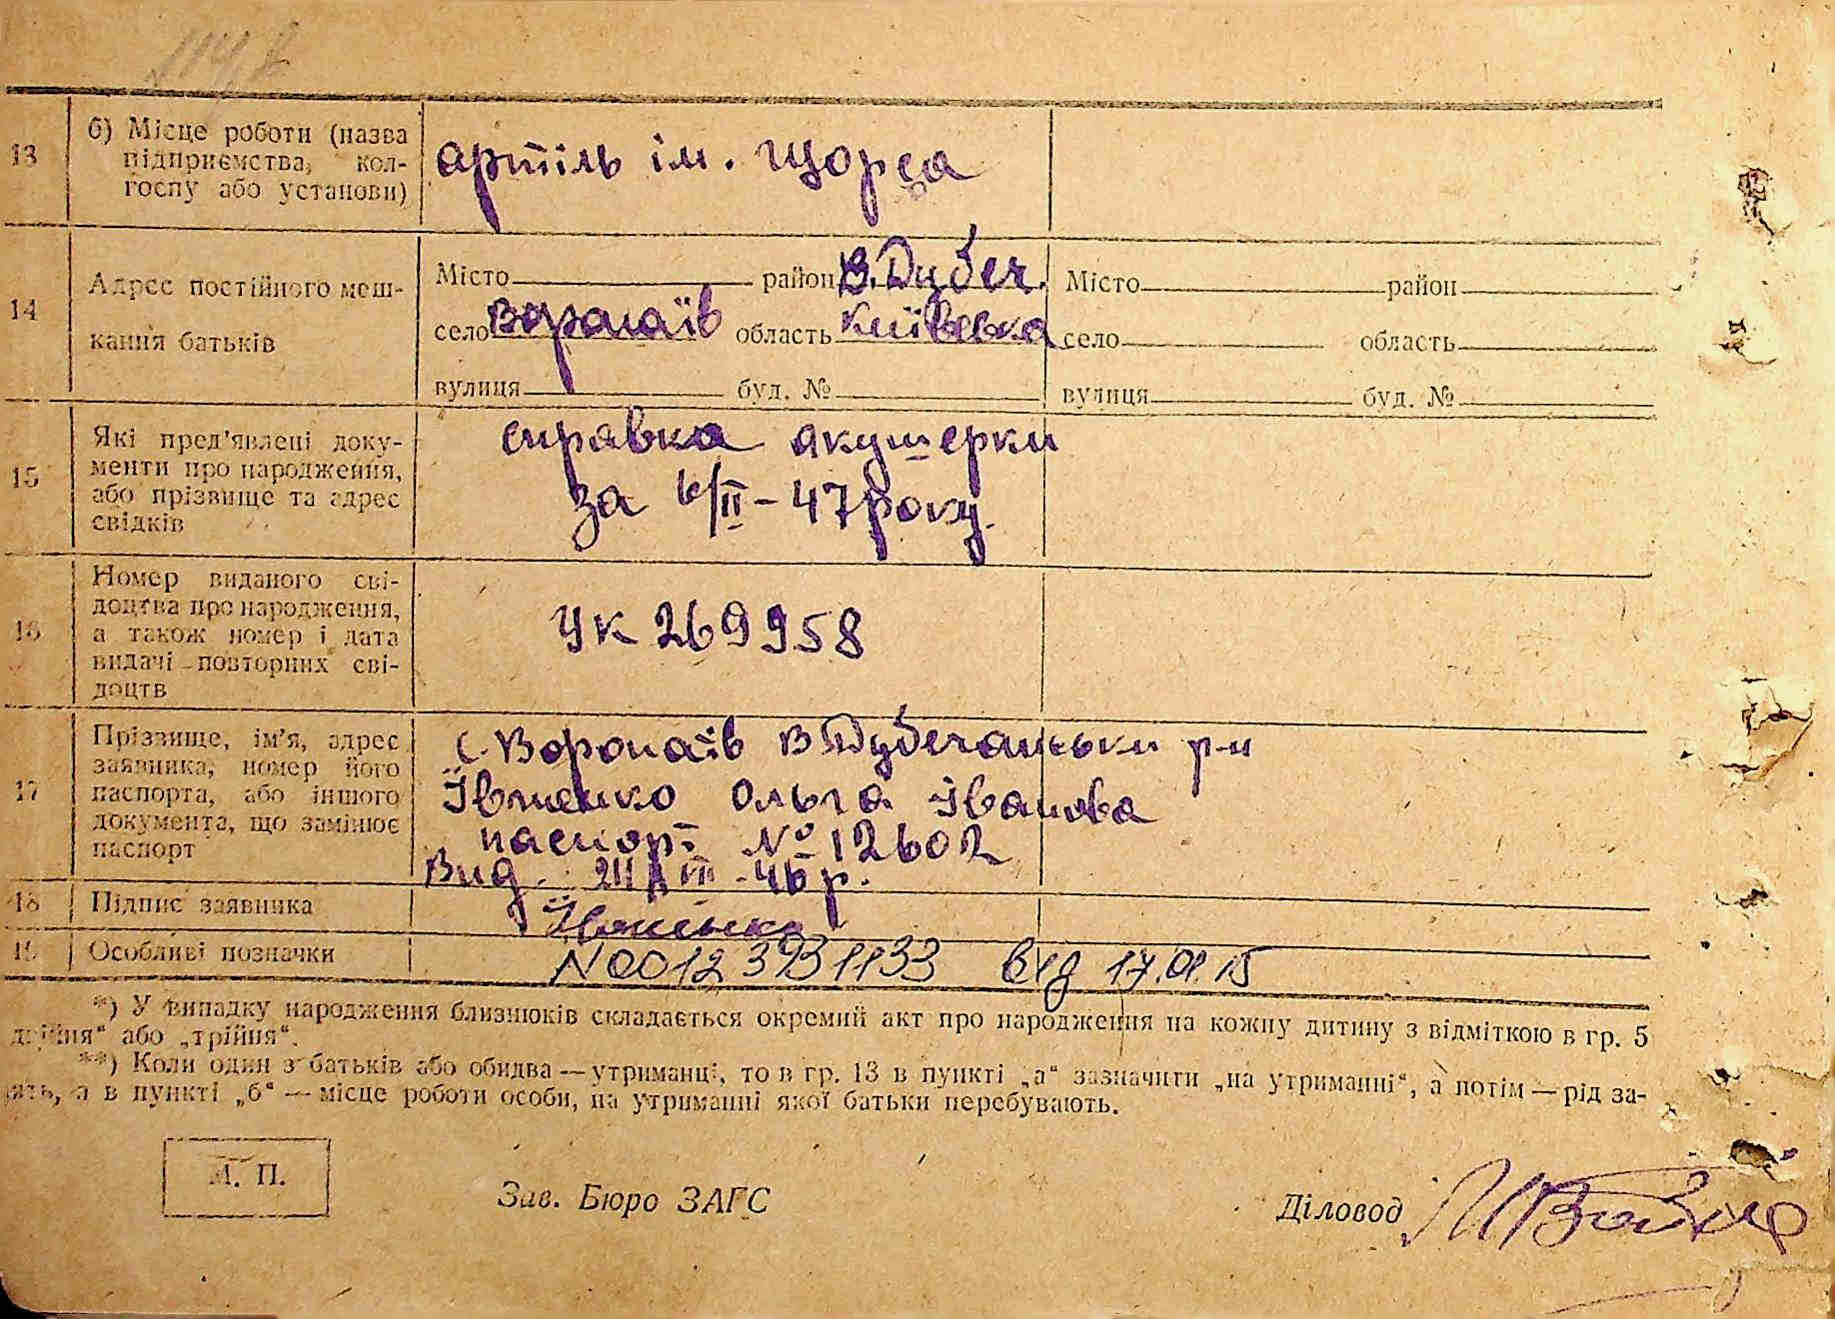 13 б) Місце роботи (назва
підприємства, кол-
госпу або установи)
артіль ім. Щорса
14 Адрес постійного меш-
кання батьків
Місто район В.Дубеч. Місто район
село Воропаїв область Київська село область
вулиця буд. № вулиця буд. №
15 Які пред'явлені доку-
менти про народження,
або прізвище та адрес
свідків
справка акушерки
за 6/II-47 року.
16 Номер виданого сві-
доцтва про народження,
а також номер і дата
видачі повторних сві-
доцтв
УК 269958
17 Прізвище, ім'я, адрес
заявника, номер його
паспорта, або іншого
документа, що замінює
паспорт
с. Воропаїв В Дубечанськи р-н
Ївженко Ольга Іванова
паспорт № 12602
Вид. VIII-46 р.
18 Підпис заявника
Ївженко
19 Особливі позначки
N 00123931133 від 17.01.15
*) У випадку народження близнюків складається окремий акт про народження на кожну дитину з відміткою в гр. 5
„двійня“ або „трійня“.
**) Коли один з батьків або обидва — утриманці, то в гр. 13 в пункті „а“ зазначити „на утриманні“, а потім — рід за-
нять, а в пункті „б“ — місце роботи особи, на утриманні якої батьки перебувають.
М. П.
Зав. Бюро ЗАГС
Діловод